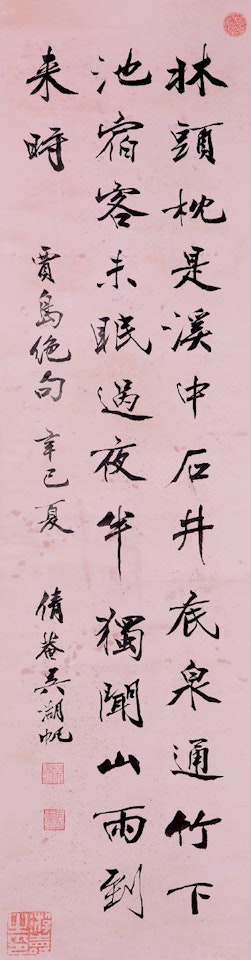 牀頭枕是溪中石井底泉通竹下
池宿客未眠過夜半獨聞山雨到
来時 賈島絶句 辛巳夏 倩菴吳湖帆